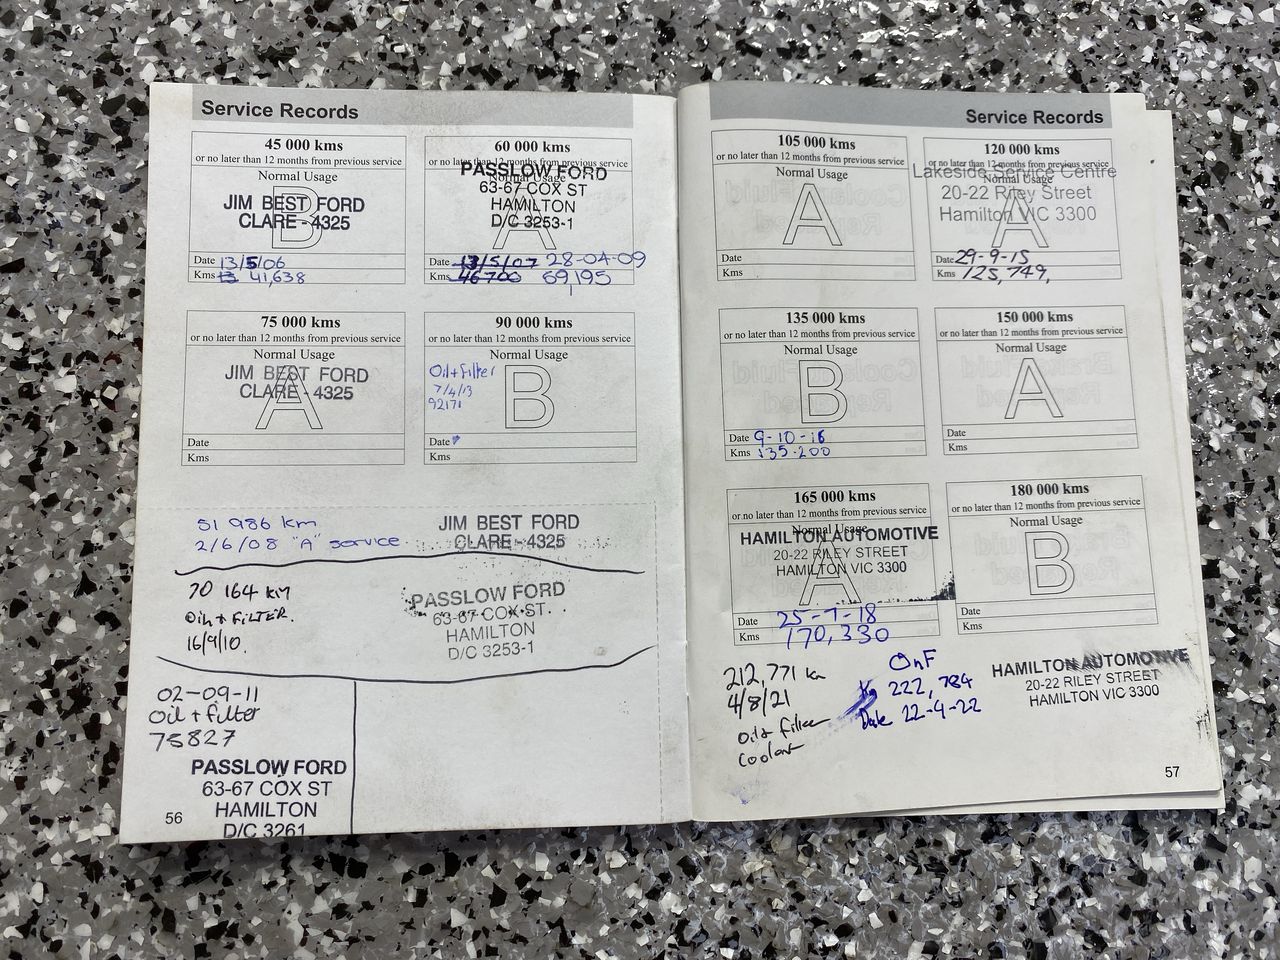 Service Records
45 000 kms
or no later than 12 months from previous service
Normal Usage
B
JIM BEST FORD
CLARE - 4325
Date 13/5/06
Kms 41,638
60 000 kms
or no later than 12 months from previous service
Normal Usage
A
PASSLOW FORD
63-67 COX ST
HAMILTON
D/C 3253-1
Date 13/5/07 28-04-09
Kms 46700 69,195
75 000 kms
or no later than 12 months from previous service
Normal Usage
A
JIM BEST FORD
CLARE - 4325
Date
Kms
90 000 kms
or no later than 12 months from previous service
Normal Usage
B
Oil + filter
7/4/13
92171
Date
Kms
51 986 km
2/6/08 "A" service
JIM BEST FORD
CLARE - 4325
70 164 KM
Oil + FiLTER.
16/9/10.
PASSLOW FORD
63-67 COX ST.
HAMILTON
D/C 3253-1
02-09-11
Oil + filter
75827
PASSLOW FORD
63-67 COX ST
HAMILTON
D/C 3261
56
Service Records
105 000 kms
or no later than 12 months from previous service
Normal Usage
A
Date
Kms
120 000 kms
or no later than 12 months from previous service
Normal Usage
A
Lakeside Service Centre
20-22 Riley Street
Hamilton VIC 3300
Date 29-9-15
Kms 125,749,
135 000 kms
or no later than 12 months from previous service
Normal Usage
B
Date 9-10-16
Kms 135-200
150 000 kms
or no later than 12 months from previous service
Normal Usage
A
Date
Kms
165 000 kms
or no later than 12 months from previous service
Normal Usage
A
HAMILTON AUTOMOTIVE
20-22 RILEY STREET
HAMILTON VIC 3300
Date 25-7-18
Kms 170,330
180 000 kms
or no later than 12 months from previous service
Normal Usage
B
Date
Kms
212,771 km
4/8/21
Oil + filter
Coolant
OnF
Kms 222,784
Date 22-4-22
HAMILTON AUTOMOTIVE
20-22 RILEY STREET
HAMILTON VIC 3300
57